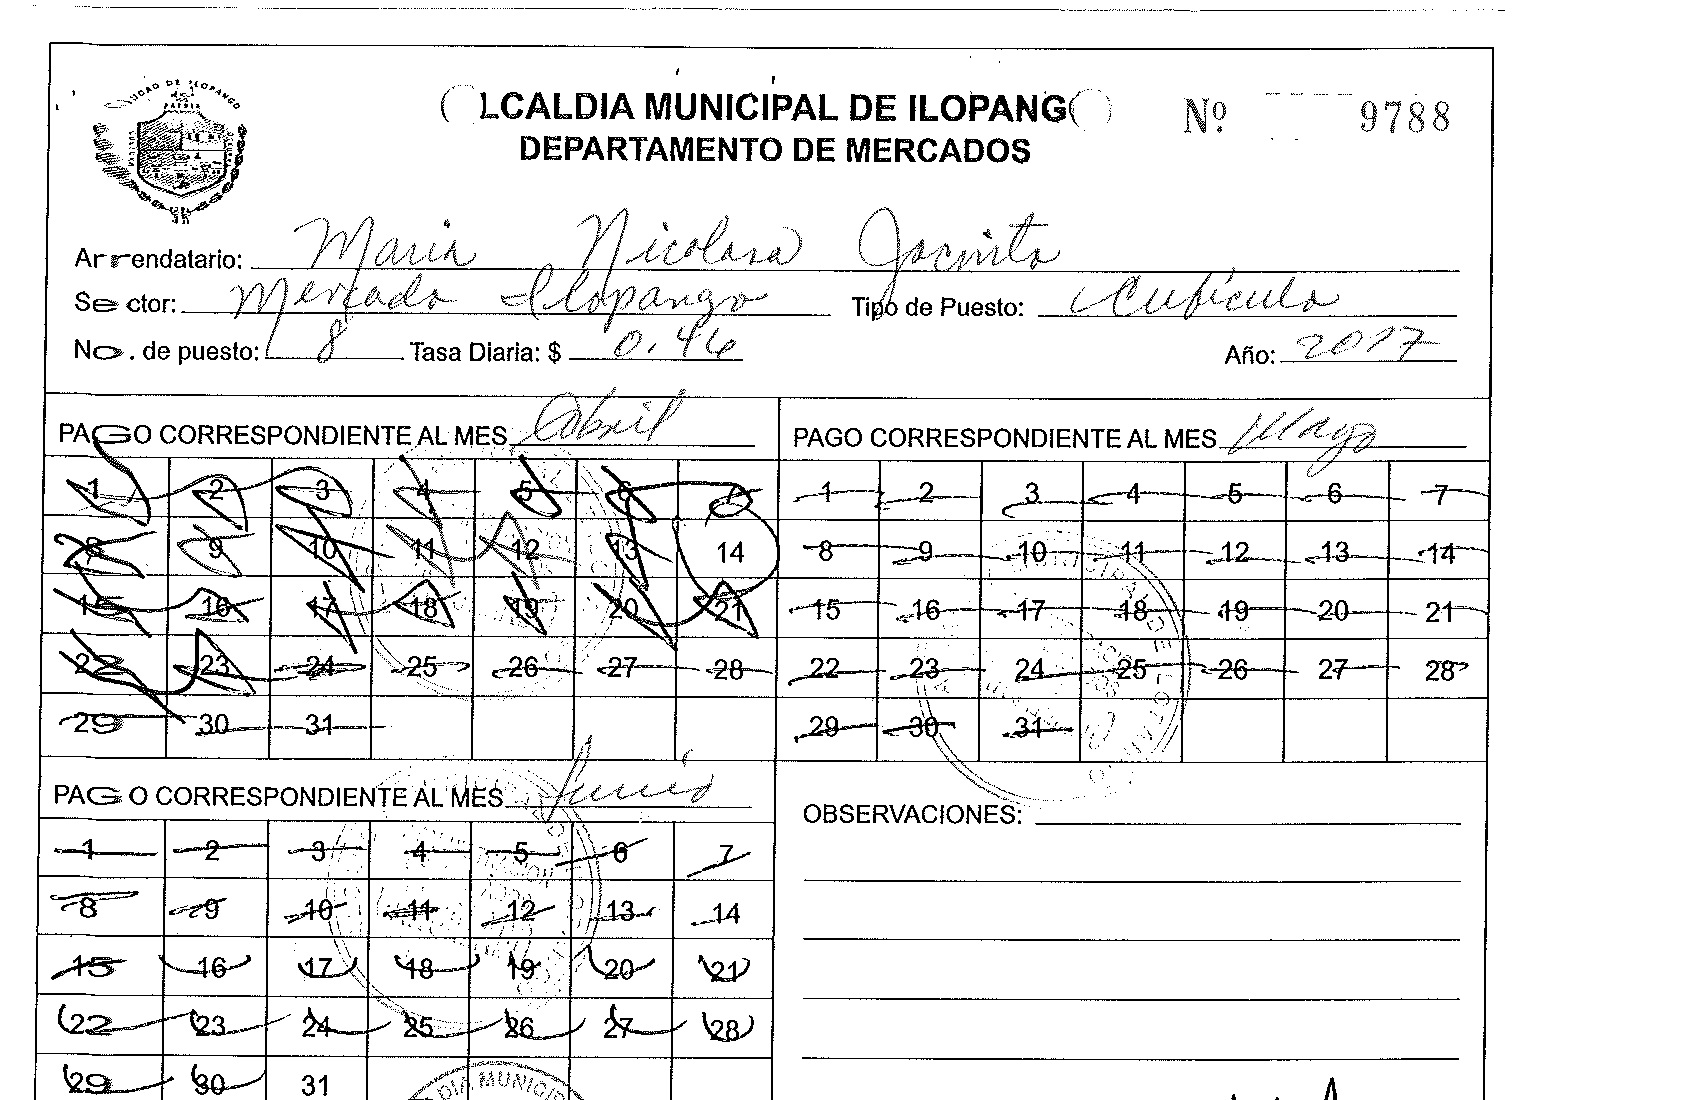 LCALDIA MUNICIPAL DE ILOPANG
Nº 9788
DEPARTAMENTO DE MERCADOS
Arrendatario: Maria Nicolasa Jacinto
Sector: Mercado Ilopango Tipo de Puesto: Cubiculo
No. de puesto: 8 Tasa Diaria: $ 0.46 Año: 2017
PAGO CORRESPONDIENTE AL MES Abril
1 2 3 4 5 6 7
8 9 10 11 12 13 14
15 16 17 18 19 20 21
22 23 24 25 26 27 28
29 30 31
PAGO CORRESPONDIENTE AL MES Mayo
1 2 3 4 5 6 7
8 9 10 11 12 13 14
15 16 17 18 19 20 21
22 23 24 25 26 27 28
29 30 31
PAGO CORRESPONDIENTE AL MES Junio
1 2 3 4 5 6 7
8 9 10 11 12 13 14
15 16 17 18 19 20 21
22 23 24 25 26 27 28
29 30 31
OBSERVACIONES:
DIA MUNICI